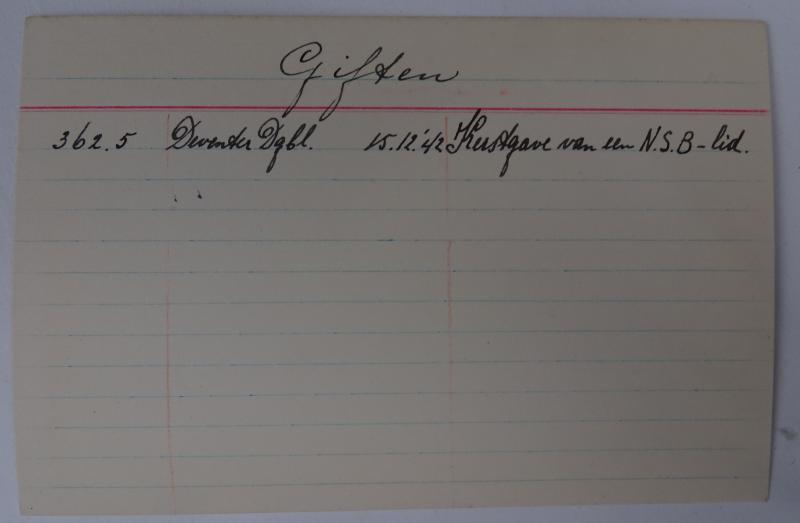 Giften
362.5 Deventer Dgbl. 15.12.'42 Kerstgave van een N.S.B-lid.